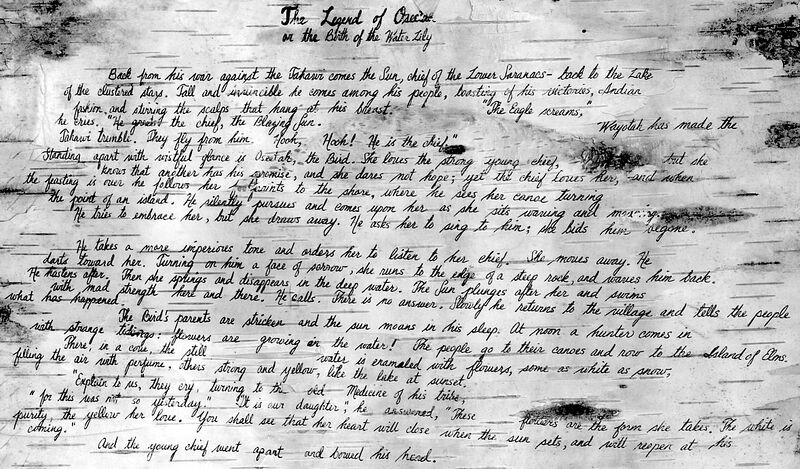 The Legend of
or the Birth of the Water Lily
Back from his war against the Tahawi comes the Sun, chief of the Lower Saranacs - back to the Lake
of the clustered stars. Tall and invincible he comes among his people, boasting of his victories, Indian
fashion, and stirring the scalps that hang at his breast. "The Eagle screams,"
he cries. "He the chief, the Blazing Sun. Wayotah has made the
Tahawi tremble. They fly from him. Hooh, Hooh! He is the chief."
Standing apart with wistful glance is Oseetah, the Bird. She loves the strong young chief, but she
knows that another has his promise, and she dares not hope; yet the chief loves her, and when
the feasting is over he follows her to the shore, where he sees her canoe turning
the point of an island. He silently pursues and comes upon her as she sits waving and
He tries to embrace her, but she draws away. He asks her to sing to him; she bids him begone.
He takes a more imperious tone and orders her to listen to her chief. She moves away. He
darts toward her. Turning on him a face of sorrow, she runs to the edge of a steep rock, and waves him back.
He hastens after. Then she springs and disappears in the deep water. The Sun plunges after her and swims
with mad strength here and there. He calls. There is no answer. Slowly he returns to the village and tells the people
what has happened.
The Bird's parents are stricken and the sun moans in his sleep. At noon a hunter comes in
with strange tidings: flowers are growing in the water! The people go to their canoes and row to the Island of Elms.
There, in a cove, the still water is enameled with flowers, some as white as snow,
filling the air with perfume, others strong and yellow, like the lake at sunset.
"Explain to us, they cry, turning to the old Medicine of his tribe,
"for this was not so yesterday." "It is our daughter", he answered, "These flowers are the form she takes. The white is
purity the yellow her love. You shall see that her heart will close when the sun sets, and will reopen at his
coming."
And the young chief went apart and bowed his head.